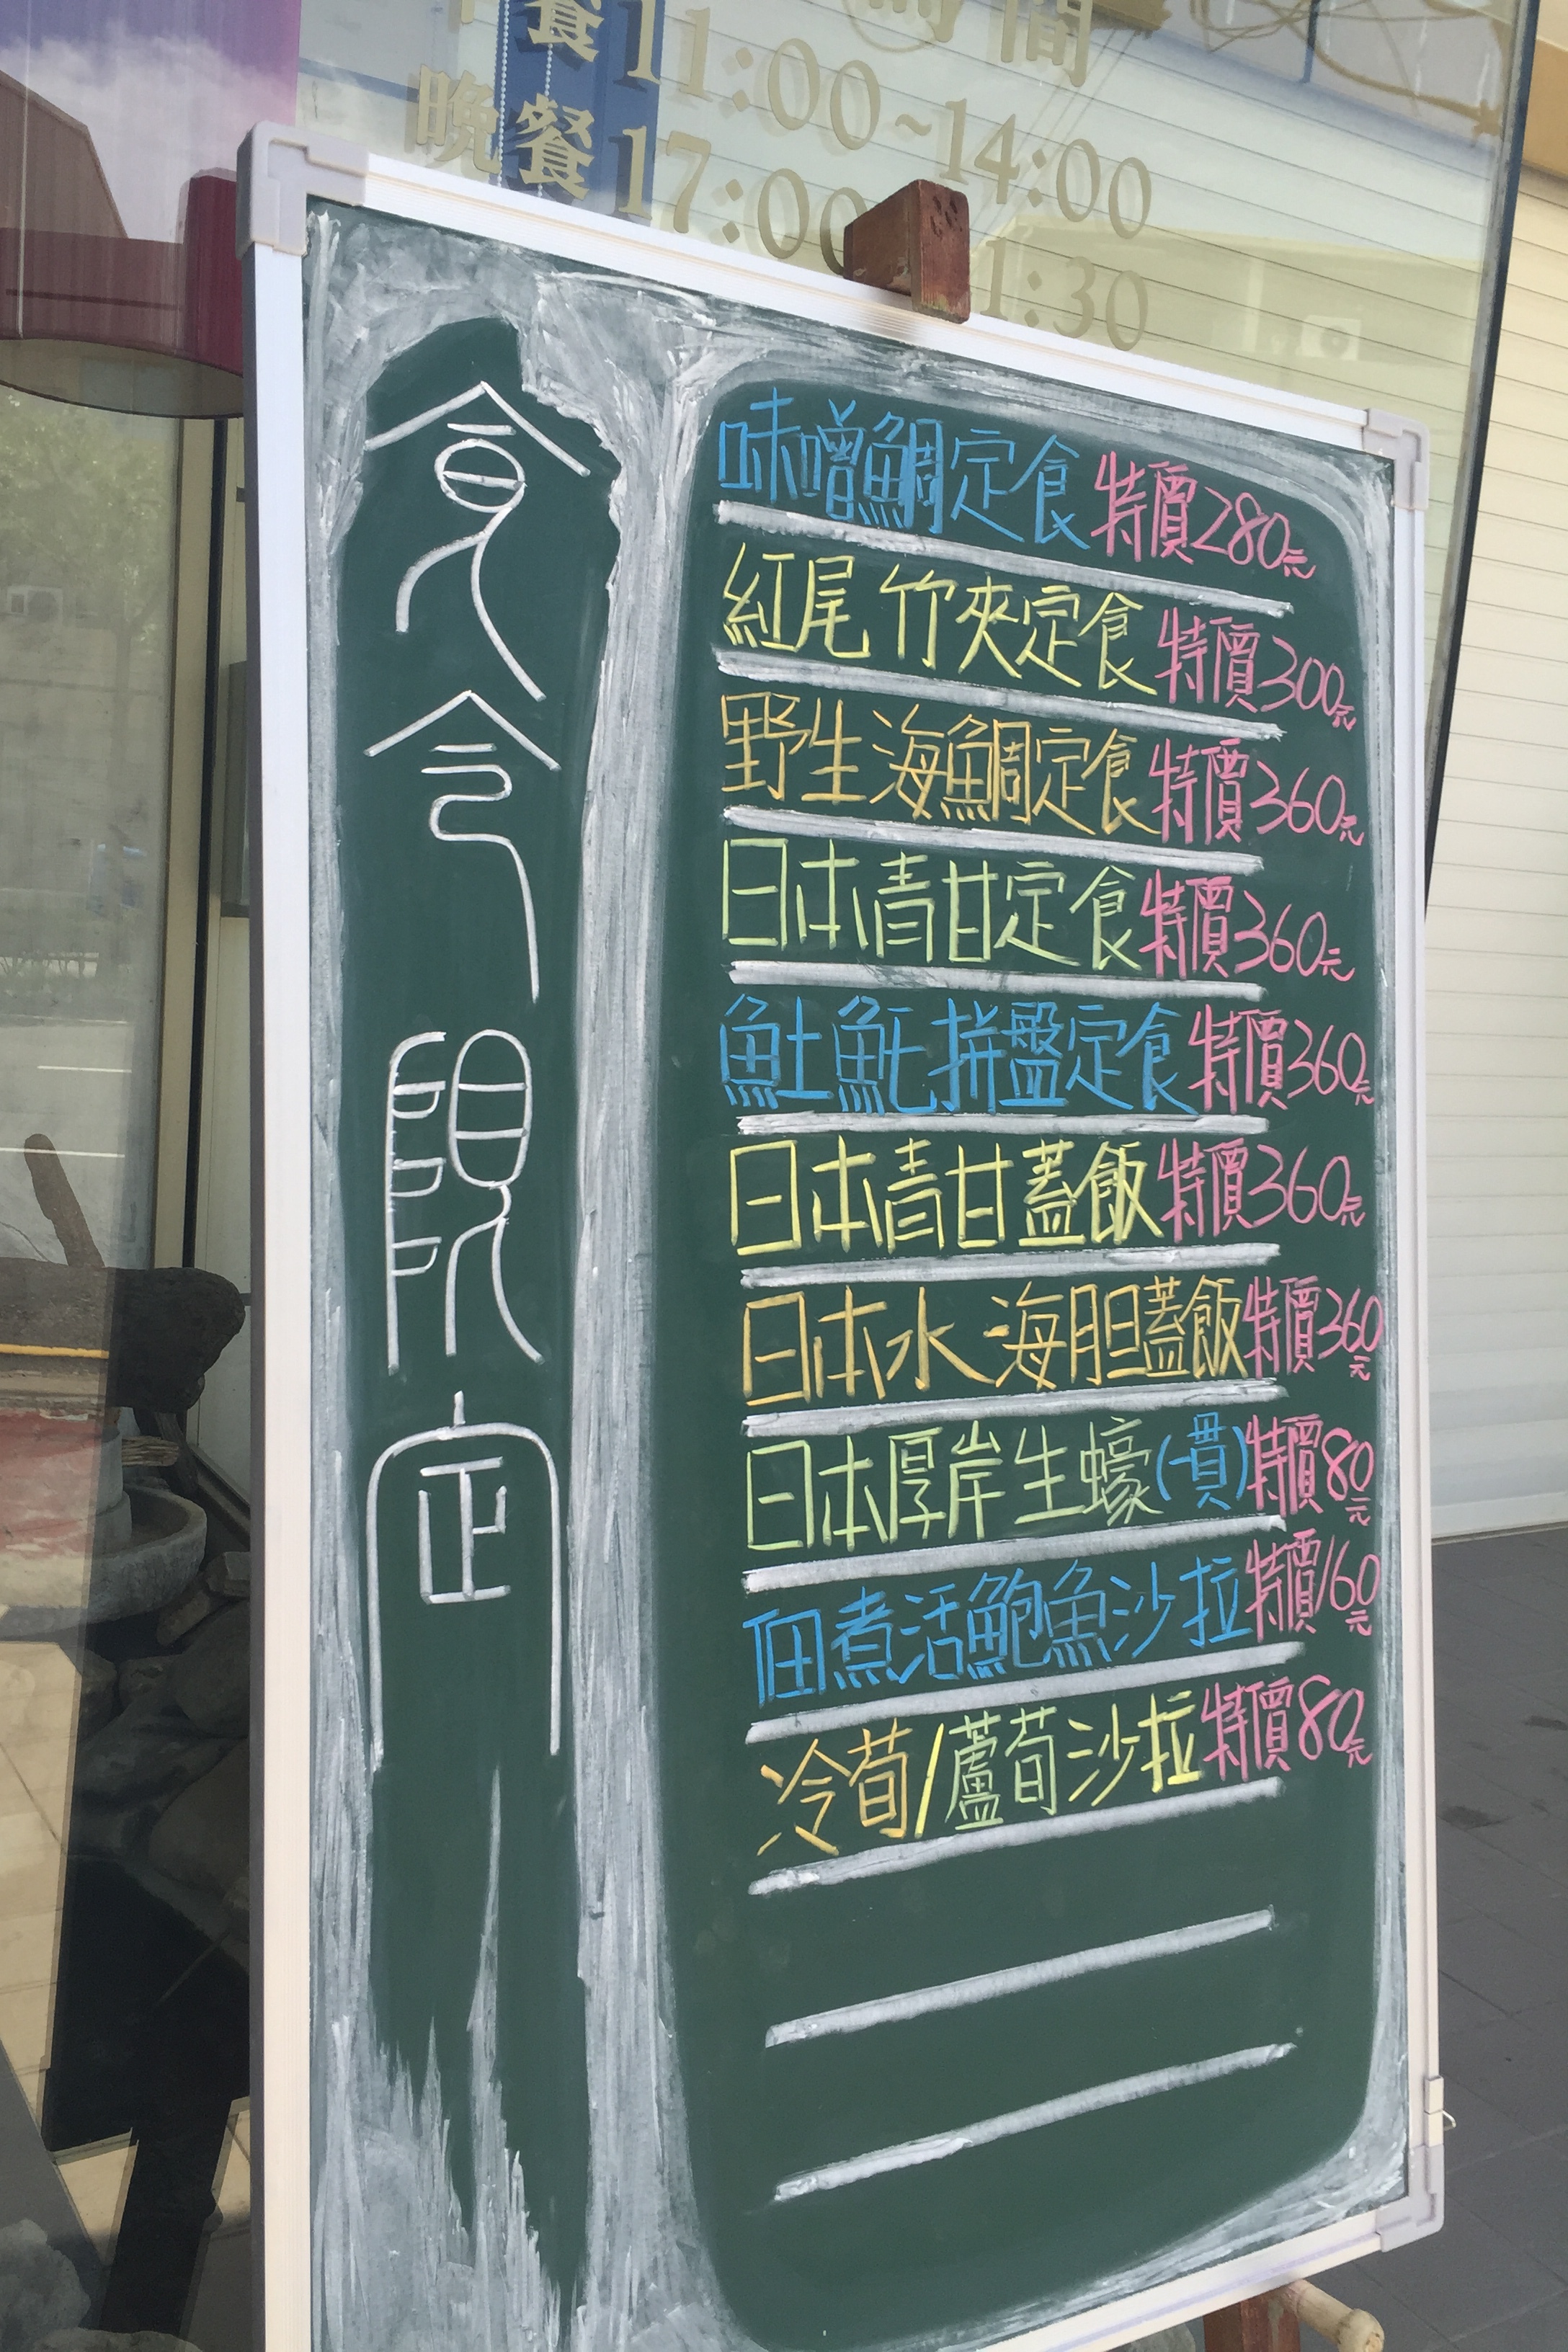 間
餐11:00~14:00
晚餐17:00
1:30
食令限定
味噌鯛定食特價280元
紅尾竹夾定食特價300元
野生海鯛定食特價360元
日本青甘定食特價360元
魠拼盤定食特價360元
日本青甘蓋飯特價360元
日本水海胆蓋飯特價360元
日本厚岸生蠔(一貫)特價80元
佃煮活鮑魚沙拉特價160元
冷荀/蘆荀沙拉特價80元